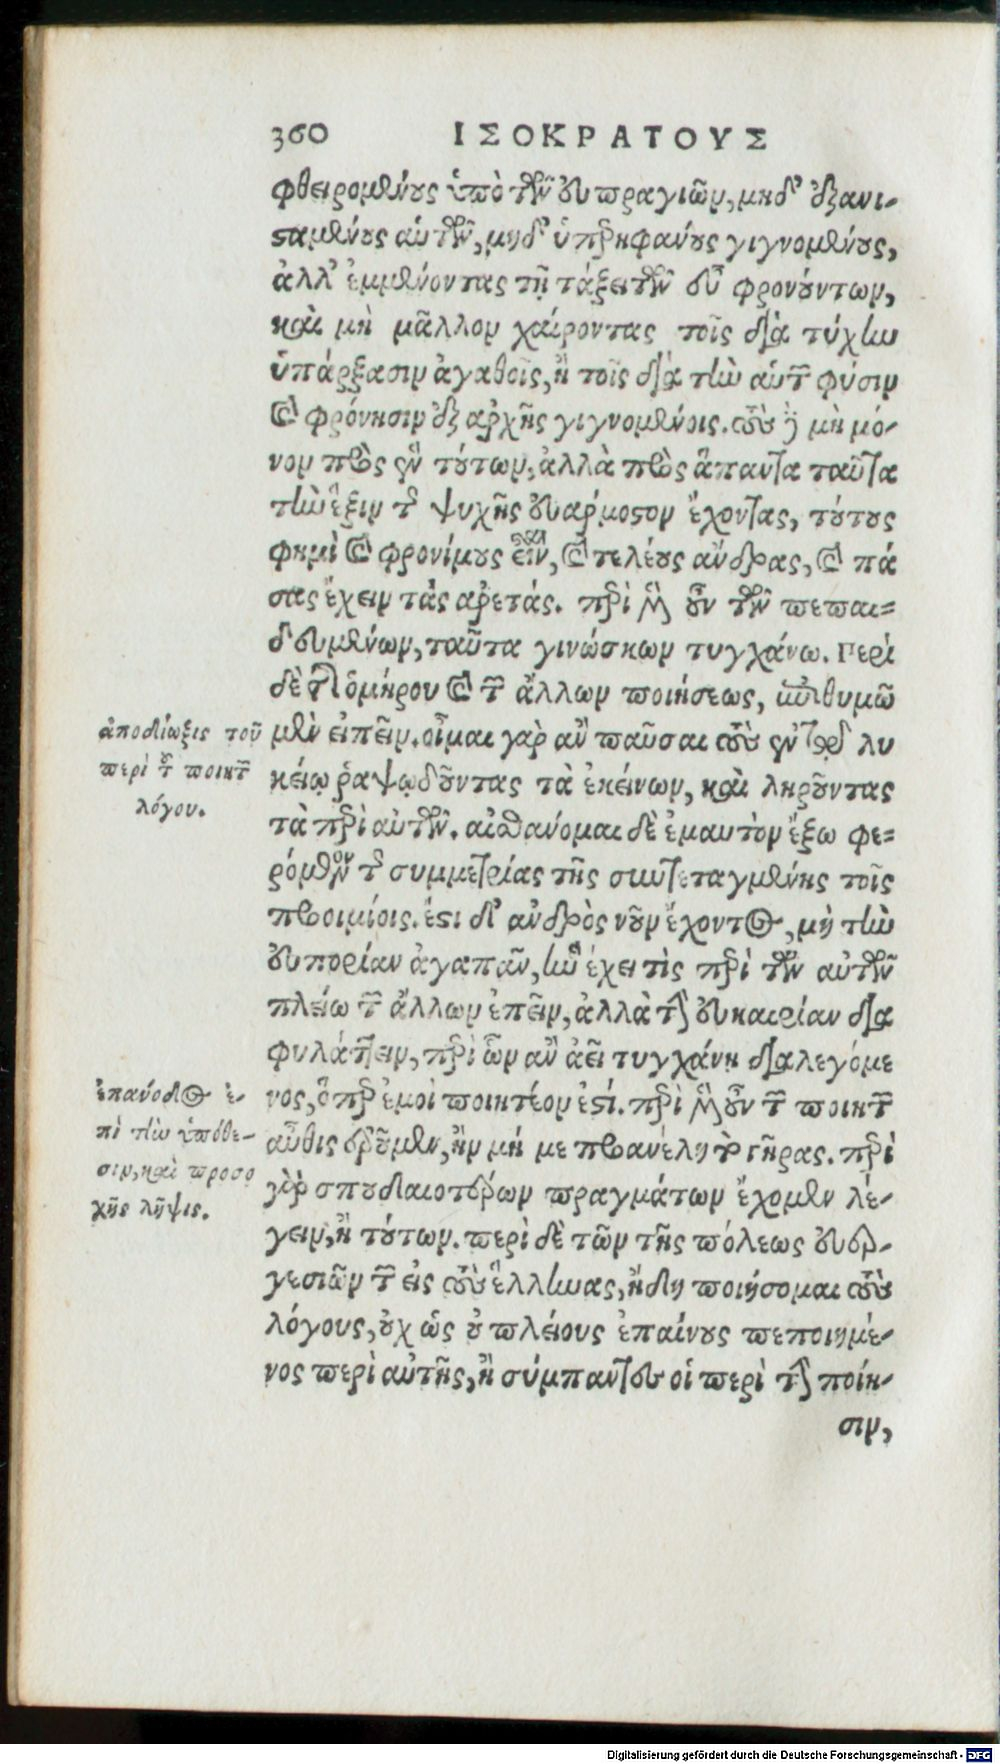 360 ΙΣΟΚΡΑΤΟΥΣ
φθειρομένους ὑπὸ τῶν εὐπραγιῶν, μηδ' ἐξανι-
σταμένους αὑτῶν, μηδ' ὑπερηφανους γιγνομένους,
ἀλλ' ἐμμένοντας τῇ τάξει τῶν εὖ φρονούντων,
καὶ μὴ μᾶλλον χαίροντας τοῖς διὰ τύχην
ὑπάρξασιν ἀγαθοῖς, ἢ τοῖς διὰ τὴν αὑτῶν φύσιν
καὶ φρόνησιν ἐξ ἀρχῆς γιγνομένοις. τοὺς δὲ μὴ μό-
νον πρὸς ἓν τούτων, ἀλλὰ πρὸς ἅπαντα ταῦτα
τὴν ἕξιν τῆς ψυχῆς εὐάρμοστον ἔχοντας, τούτους
φημὶ καὶ φρονίμους εἶναι, καὶ τελέους ἄνδρας, καὶ πά
σας ἔχειν τὰς ἀρετάς. περὶ μὲν οὖν τῶν πεπαι=
δευμένων, ταῦτα γινώσκων τυγχάνω. Περὶ
δὲ τῆς ὁμήρου καὶ τῶν ἄλλων ποιήσεως, ἐπιθυμῶ
μὲν εἰπεῖν. οἶμαι γὰρ ἂν παῦσαι τοὺς ἐν τῷ λυ
κείῳ ῥαψῳδοῦντας τὰ ἐκείνων, καὶ ληροῦντας
τὰ περὶ αὐτῶν. αἰσθάνομαι δὲ ἐμαυτὸν ἔξω φε=
ρόμενον τῆς συμμετρίας τῆς συντεταγμένης τοῖς
προοιμίοις. ἔστι δ' ἀνδρὸς νοῦν ἔχοντος, μὴ τὴν
εὐπορίαν ἀγαπᾶν, ἣν ἔχει τὶς περὶ τῶν αὐτῶν
πλείω τῶν ἄλλων εἰπεῖν, ἀλλὰ τὴν εὐκαιρίαν δια
φυλάττειν, περὶ ὧν ἂν ἀεὶ τυγχάνῃ διαλεγόμε
νος, ὅπερ ἐμοὶ ποιητέον ἐστί. περὶ μὲν οὖν τῶν ποιητῶν
αὖθις ἐροῦμεν, ἢν μή με προανέλῃ τὸ γῆρας. περὶ
γὰρ σπουδαιοτέρων πραγμάτων ἔχομεν λέ-
γειν, ἢ τούτων. περὶ δὲ τῶν τῆς πόλεως εὐερ-
γεσιῶν τῶν εἰς τοὺς ἕλληνας, ἤδη ποιήσομαι τοὺς
λόγους, οὐχ ὡς οὐ πλείους ἐπαίνους πεποιημέ-
νος περὶ αὐτῆς, ἢ σύμπαντες οἱ περὶ τὴν ποίη-
σιν,
ἀποδίωξις τοῦ
περὶ τῶν ποιητῶν
λόγου.
ἐπάνοδος ἐ-
πὶ τὴν ὑπόθε-
σιν, καὶ προσο
χῆς λῆψις.
Digitalisierung gefördert durch die Deutsche Forschungsgemeinschaft - DFG